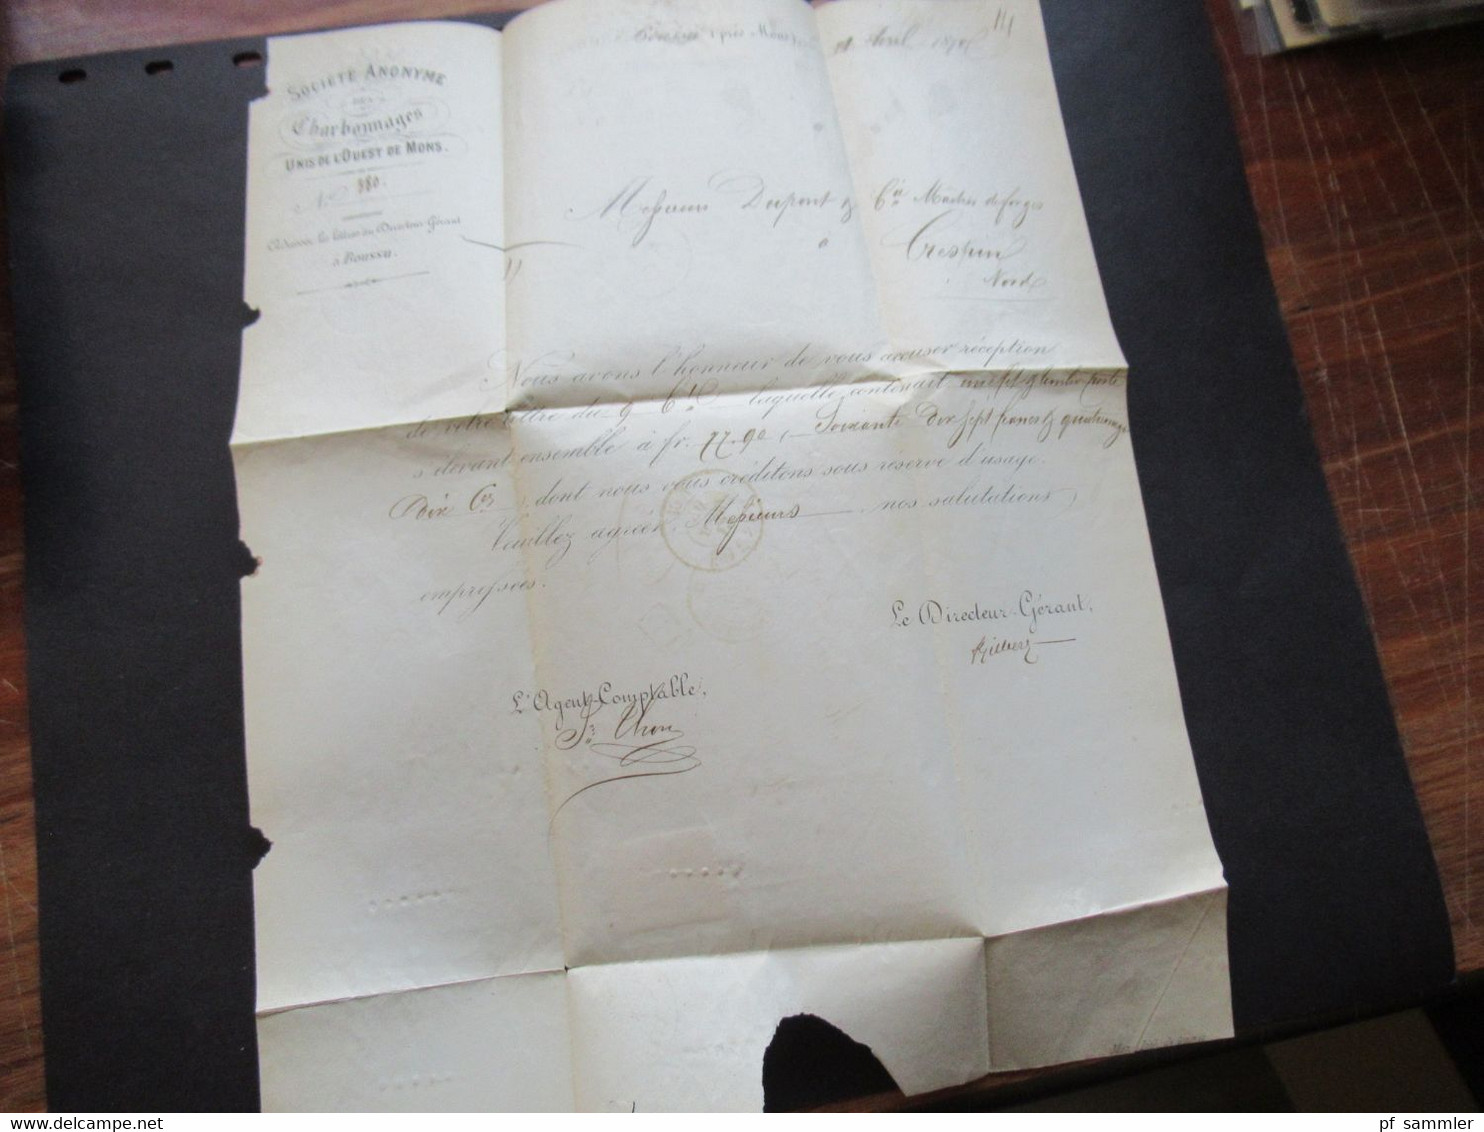 Société Anonyme
des
Charbonnages
Unis de l'Ouest de Mons.
No 980.
Adresser les lettres au Directeur-Gérant
à Boussu.
Boussu (près Mons)
Avril
Messieurs Dupont & Cie
Crespin
Nord
Nous avons l'honneur de vous accuser réception
de votre lettre du 9 Ct laquelle contenait
s'élevant ensemble à fr. 77.90 (Soixante Dix sept francs
Dix Ces) dont nous vous créditons sous réserve d'usage.
Veuillez agréer, Messieurs, nos salutations
empressées.
Le Directeur-Gérant,
L'Agent-Comptable,
pf sammler